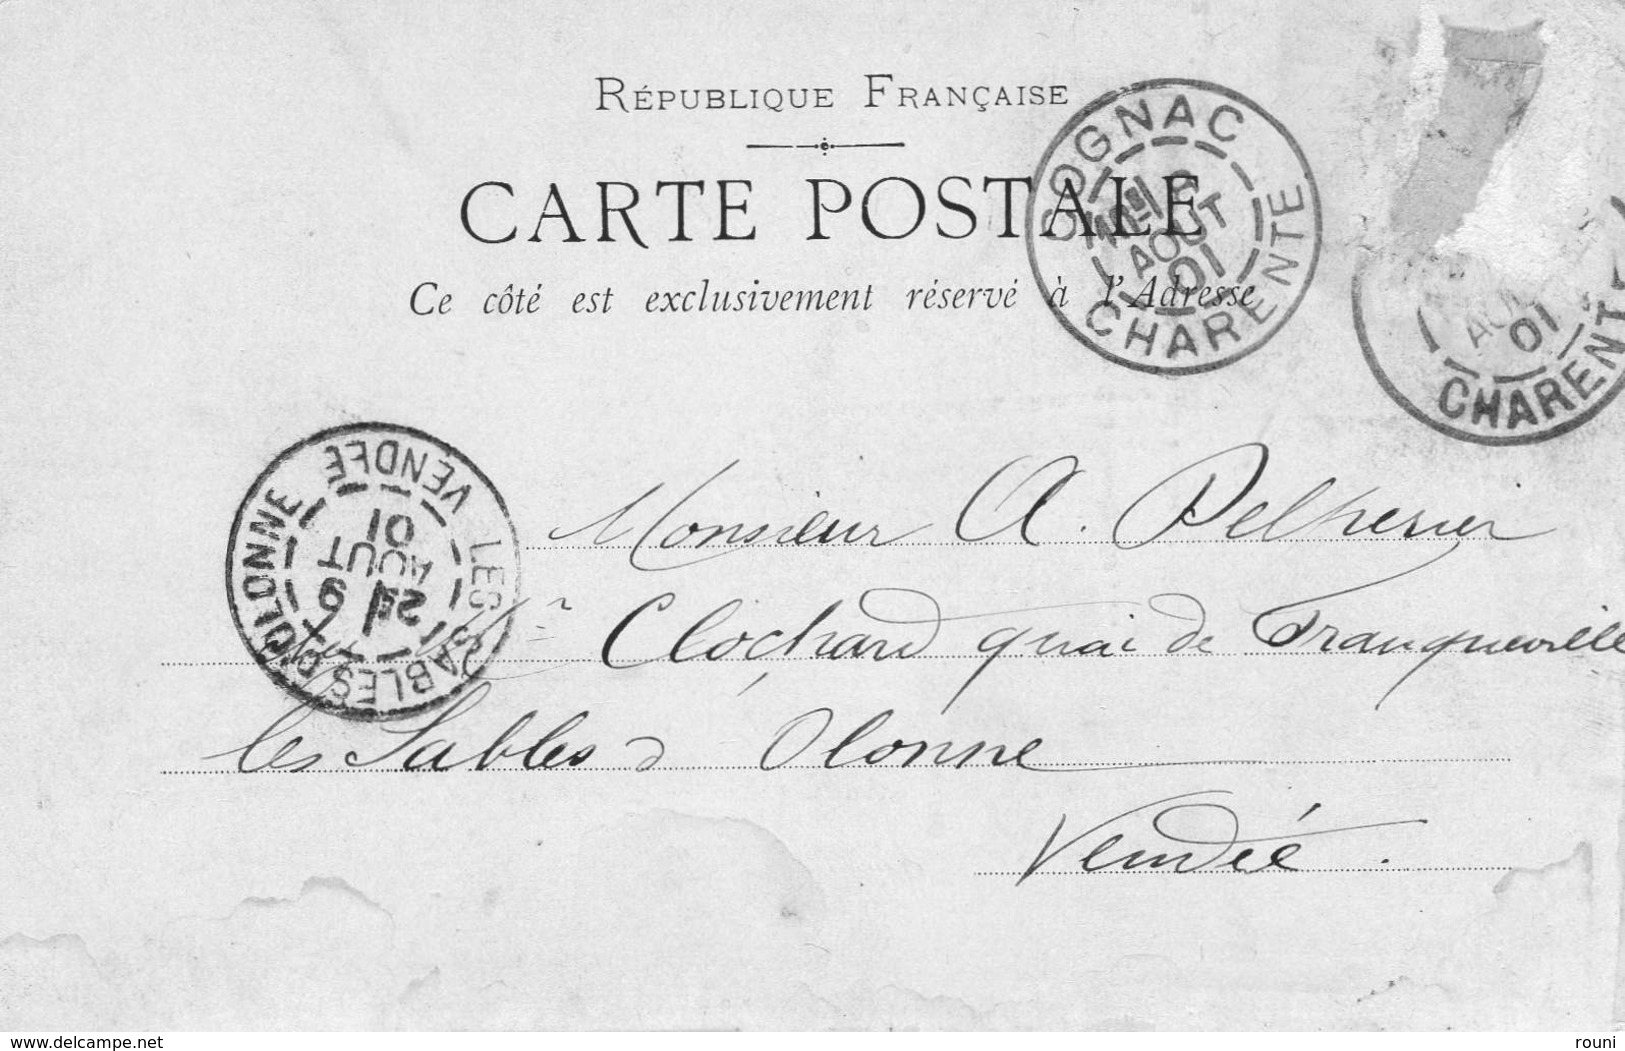 RÉPUBLIQUE FRANÇAISE
CARTE POSTALE
Ce côté est exclusivement réservé à l'Adresse
COGNAC
AOUT
01
CHARENTE
AOUT
01
CHARENTE
LES SABLES D'OLONNE
2E 9
AOUT
01
VENDÉE
Monsieur A. Pelherier
Clochard quai de Franqueville
les Sables d'Olonne
Vendée.
www.delcampe.net
rouni